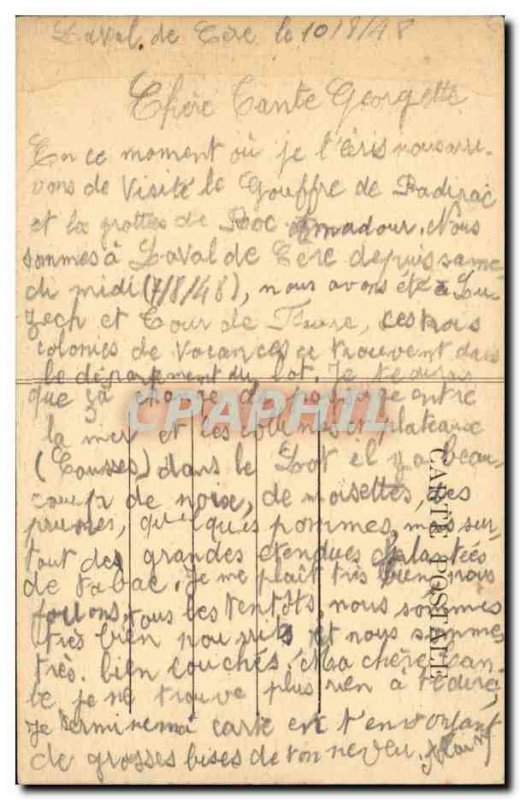 Laval de Cère le 10/8/48
Chère Tante Georgette
En ce moment où je t'écris nous arri-
vons de visité le Gouffre de Padirac
et la grottes de Roc Amadour. Nous
sommes à Laval de Cère depuis same-
di midi (7/8/48), nous avons été à Lu-
zech et Tour de Faure, ces trois
colonies de vacances se trouvent dans
le département du Lot. Je te dirais
que ça change de paysage entre
la mer et les collines et plateaux
(Causses) dans le Lot il y a beau-
coup de noix, de noisettes, des
prunes, quelques pommes, mais sur-
tout des grandes étendues plantées
de tabac. Je me plaît très bien, nous
tous les nous sommes
très bien nourrits et nous sommes
très bien couchés. Ma chère Tan-
te je ne trouve plus rien à te dire,
je termine ma carte en t'envoyant
de grosses bises de ton neveu Alain
CARTE POSTALE
CPAPHIL